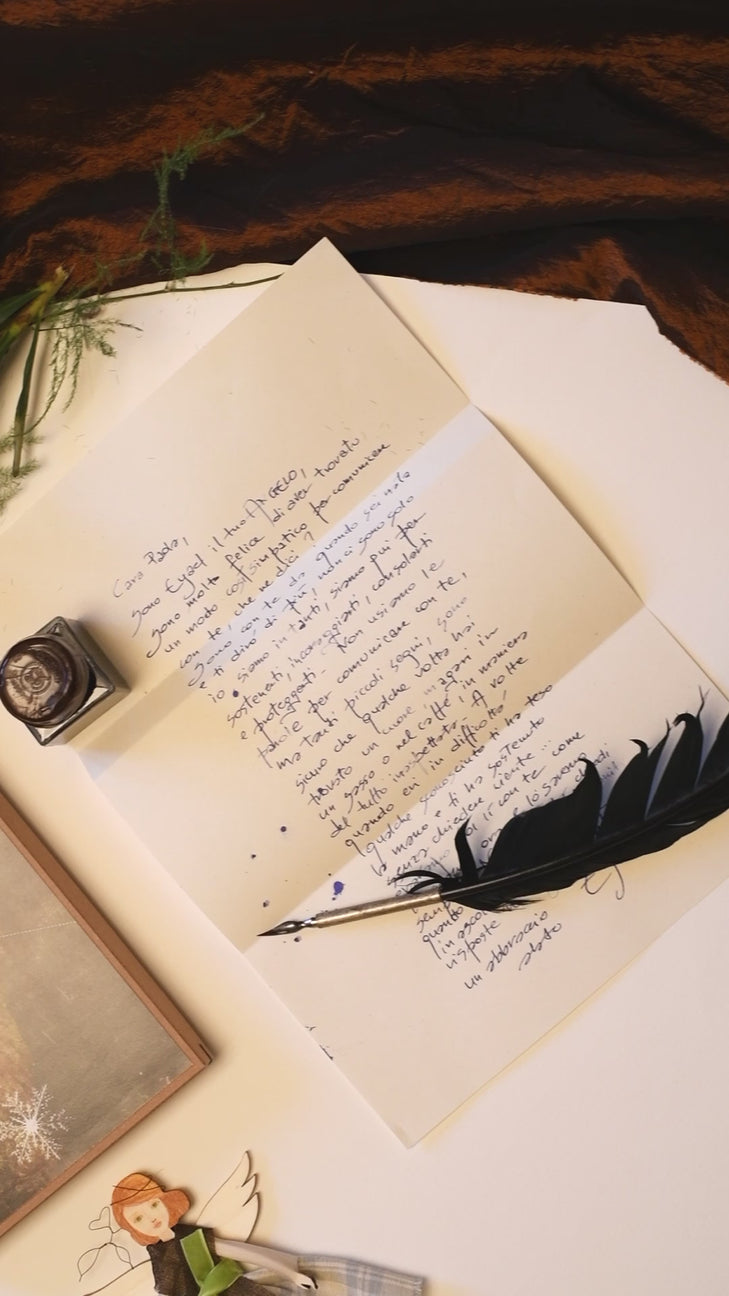 Cara Paola,
sono Eyael il tuo ANGELO,
sono molto felice di aver trovato
un modo così simpatico per comunicare
con te, che ne dici?
Sono con te da quando sei nata
e ti dirò di più, non ci sono solo
io siamo in tanti, siamo qui per
sostenerti, incoraggiarti, consolarti
e proteggerti. Non usiamo le
parole per comunicare con te,
ma tanti piccoli segni, sono
sicuro che qualche volta hai
trovato un cuore magari in
un sasso o nel caffè in maniera
del tutto inaspettata. A volte
quando eri in difficoltà
qualche sconosciuto ti ha teso
la mano e ti ha sostenuto
senza chiedere niente...
noi lì con te come
ora e lo saremo
sem
quanto
in asco
risposte
un abbraccio
alato